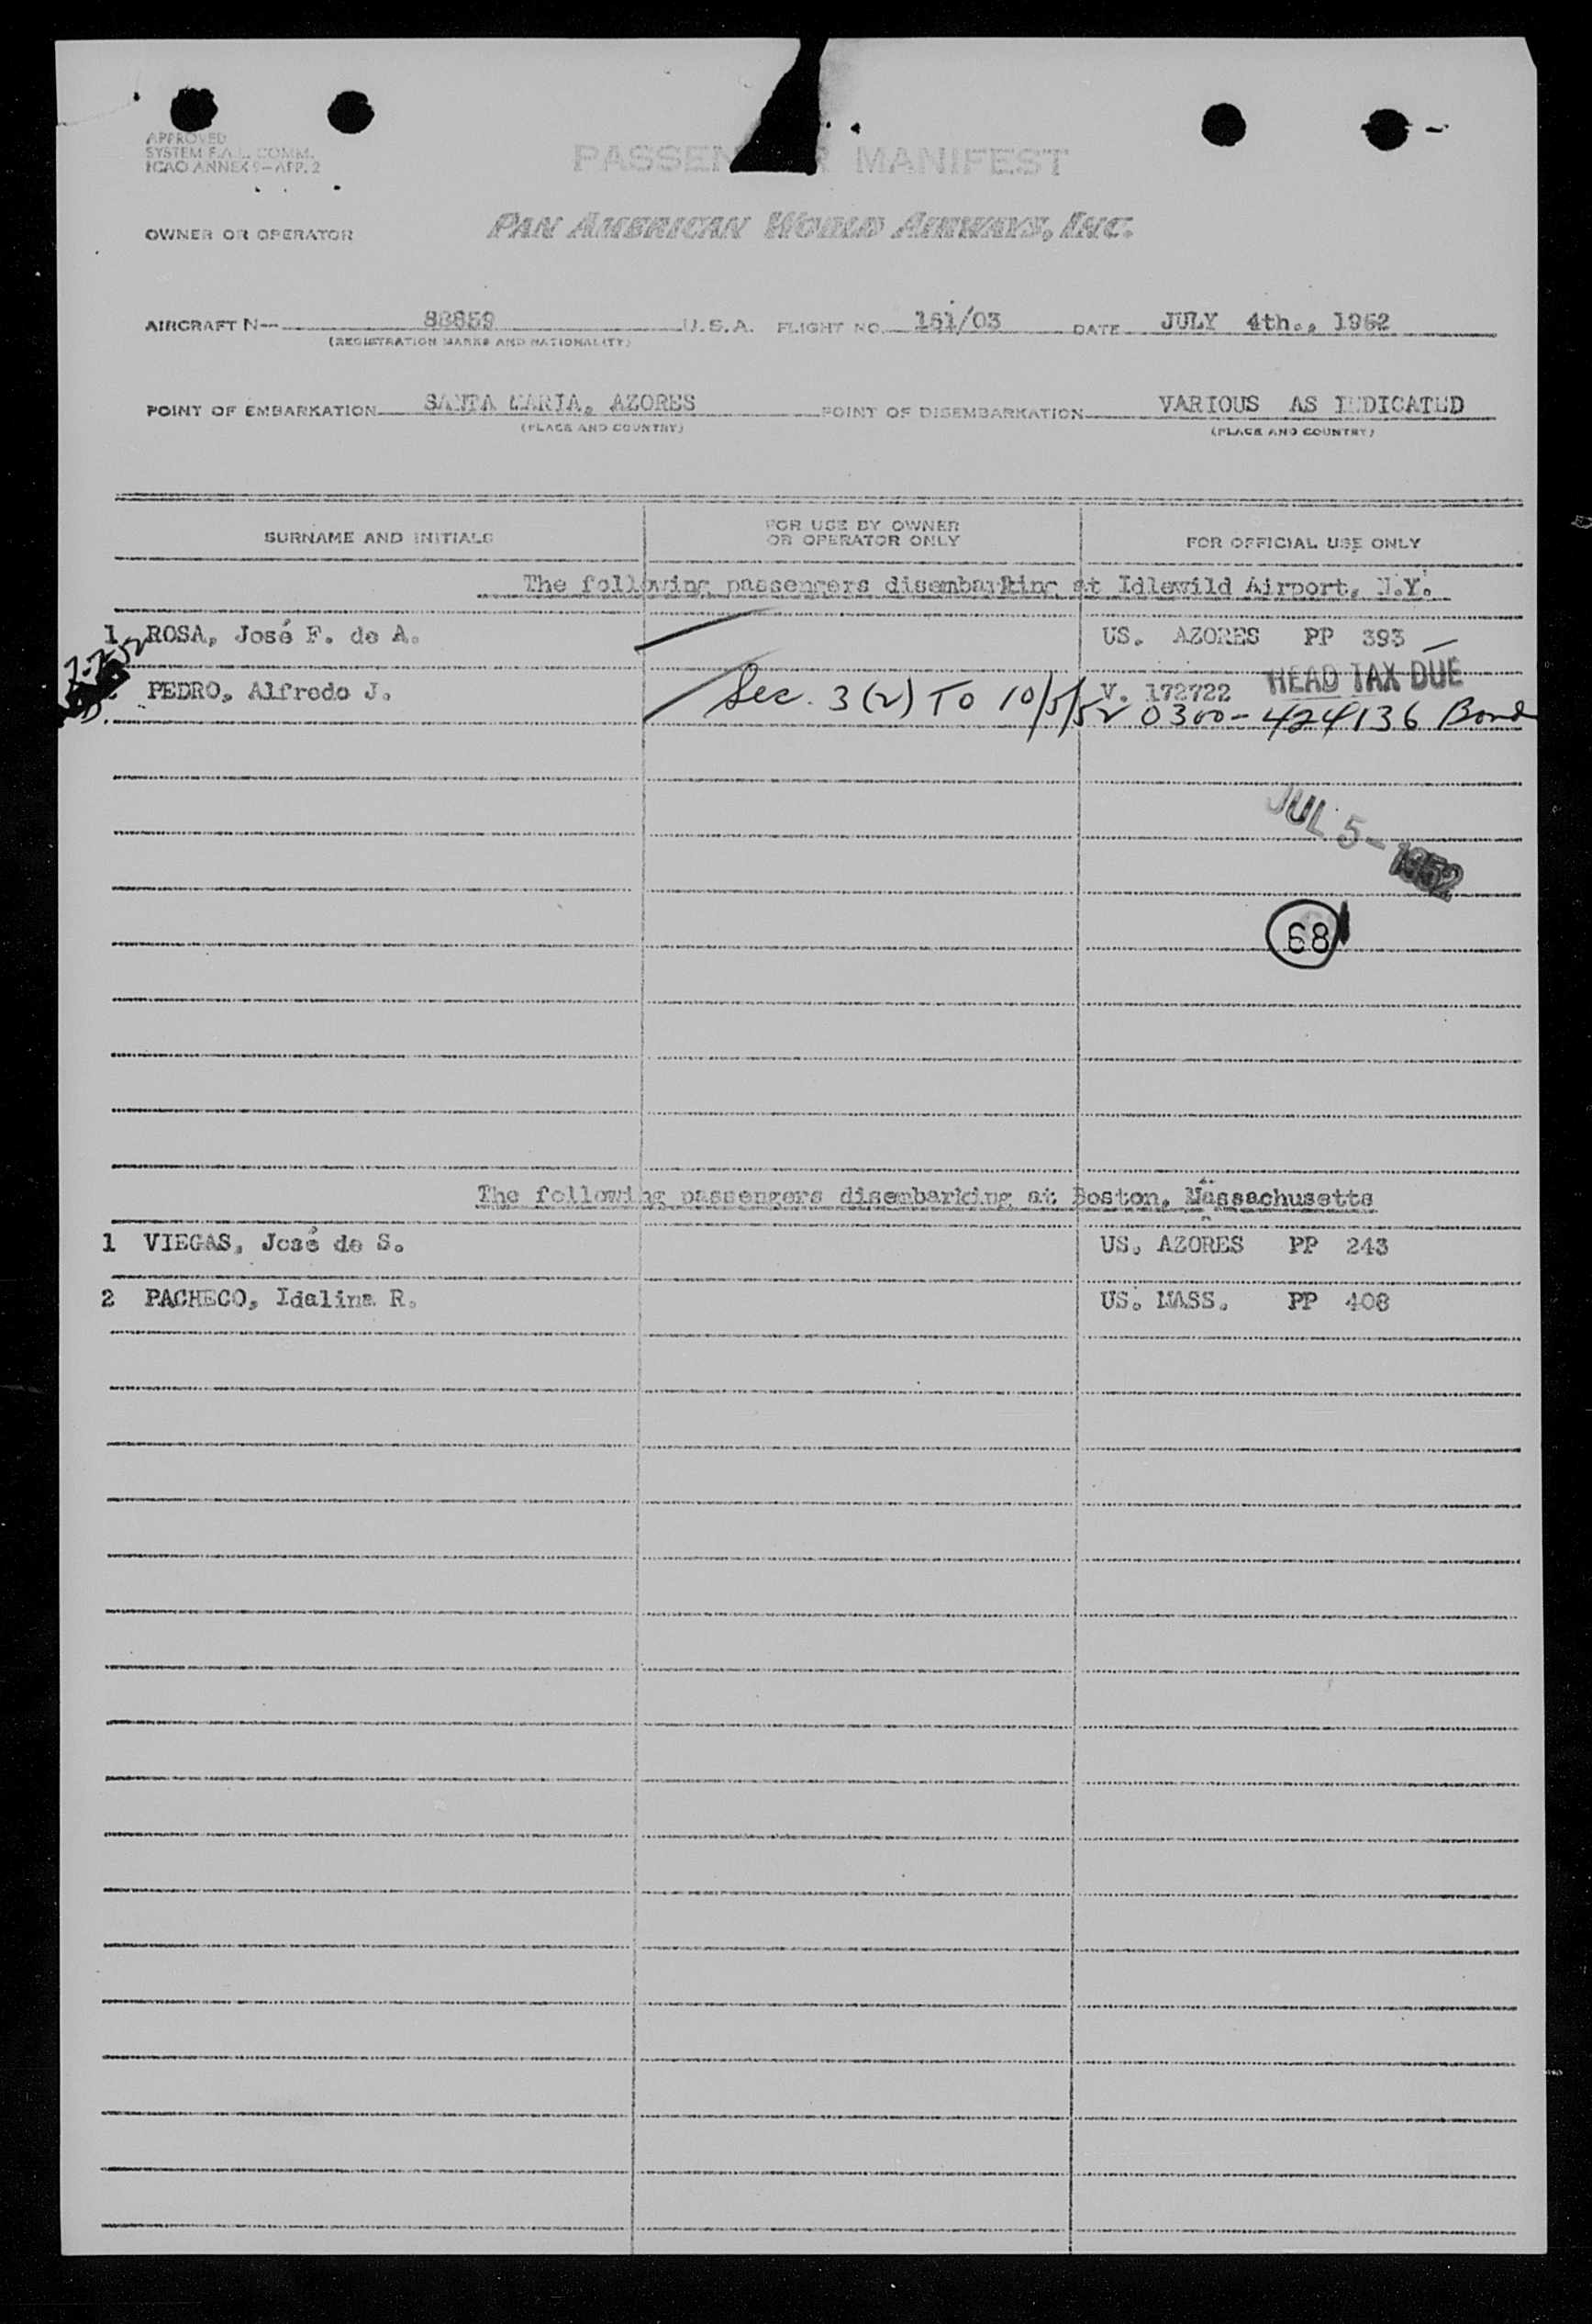 APPROVED
SYSTEM F.A.L. COMM.
ICAO ANNEX 9-APP. 2
PASSEN R MANIFEST
OWNER OR OPERATOR PAN AMERICAN WORLD AIRWAYS, INC.
AIRCRAFT N- 88859 U.S.A. FLIGHT NO. 151/03 DATE JULY 4th., 1952
(REGISTRATION MARKS AND NATIONALITY)
POINT OF EMBARKATION SANTA MARIA, AZORES POINT OF DISEMBARKATION VARIOUS AS INDICATED
(PLACE AND COUNTRY) (PLACE AND COUNTRY)
SURNAME AND INITIALS FOR USE BY OWNER OR OPERATOR ONLY FOR OFFICIAL USE ONLY
The following passengers disembarking at Idlewild Airport, N.Y.
1 ROSA, José F. de A. US. AZORES PP 393
PEDRO, Alfredo J. V. 172722 HEAD TAX DUE
Sec. 3(2) TO 10/5/52 0300-424136 Bond
JUL 5-1952
68
The following passengers disembarking at Boston, Massachusetts
1 VIEGAS, José de S. US. AZORES PP 243
2 PACHECO, Idalina R. US. MASS. PP 408